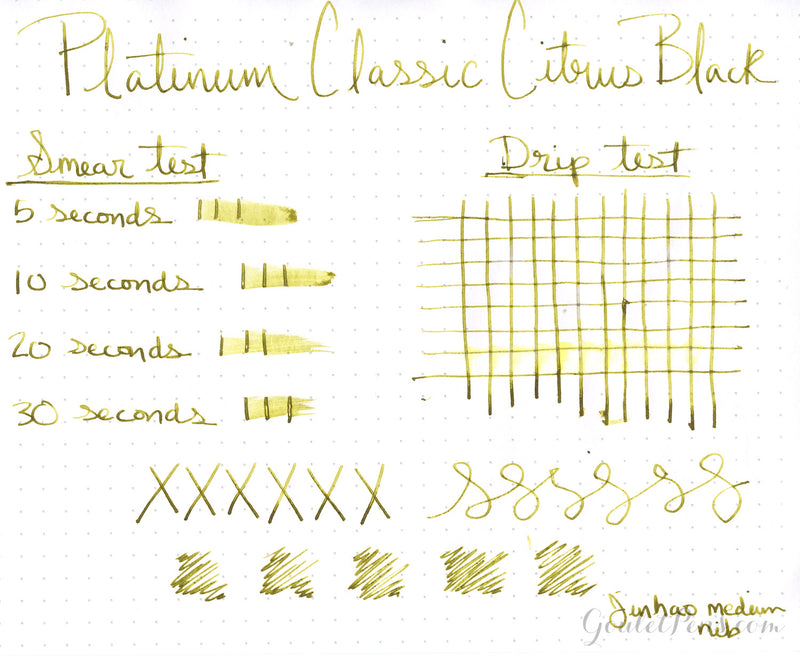 Platinum Classic Citrus Black
Smear test
5 seconds
10 seconds
20 seconds
30 seconds
Drip test
XXXXXX
Jinhao medium
nib
GouletPens.com